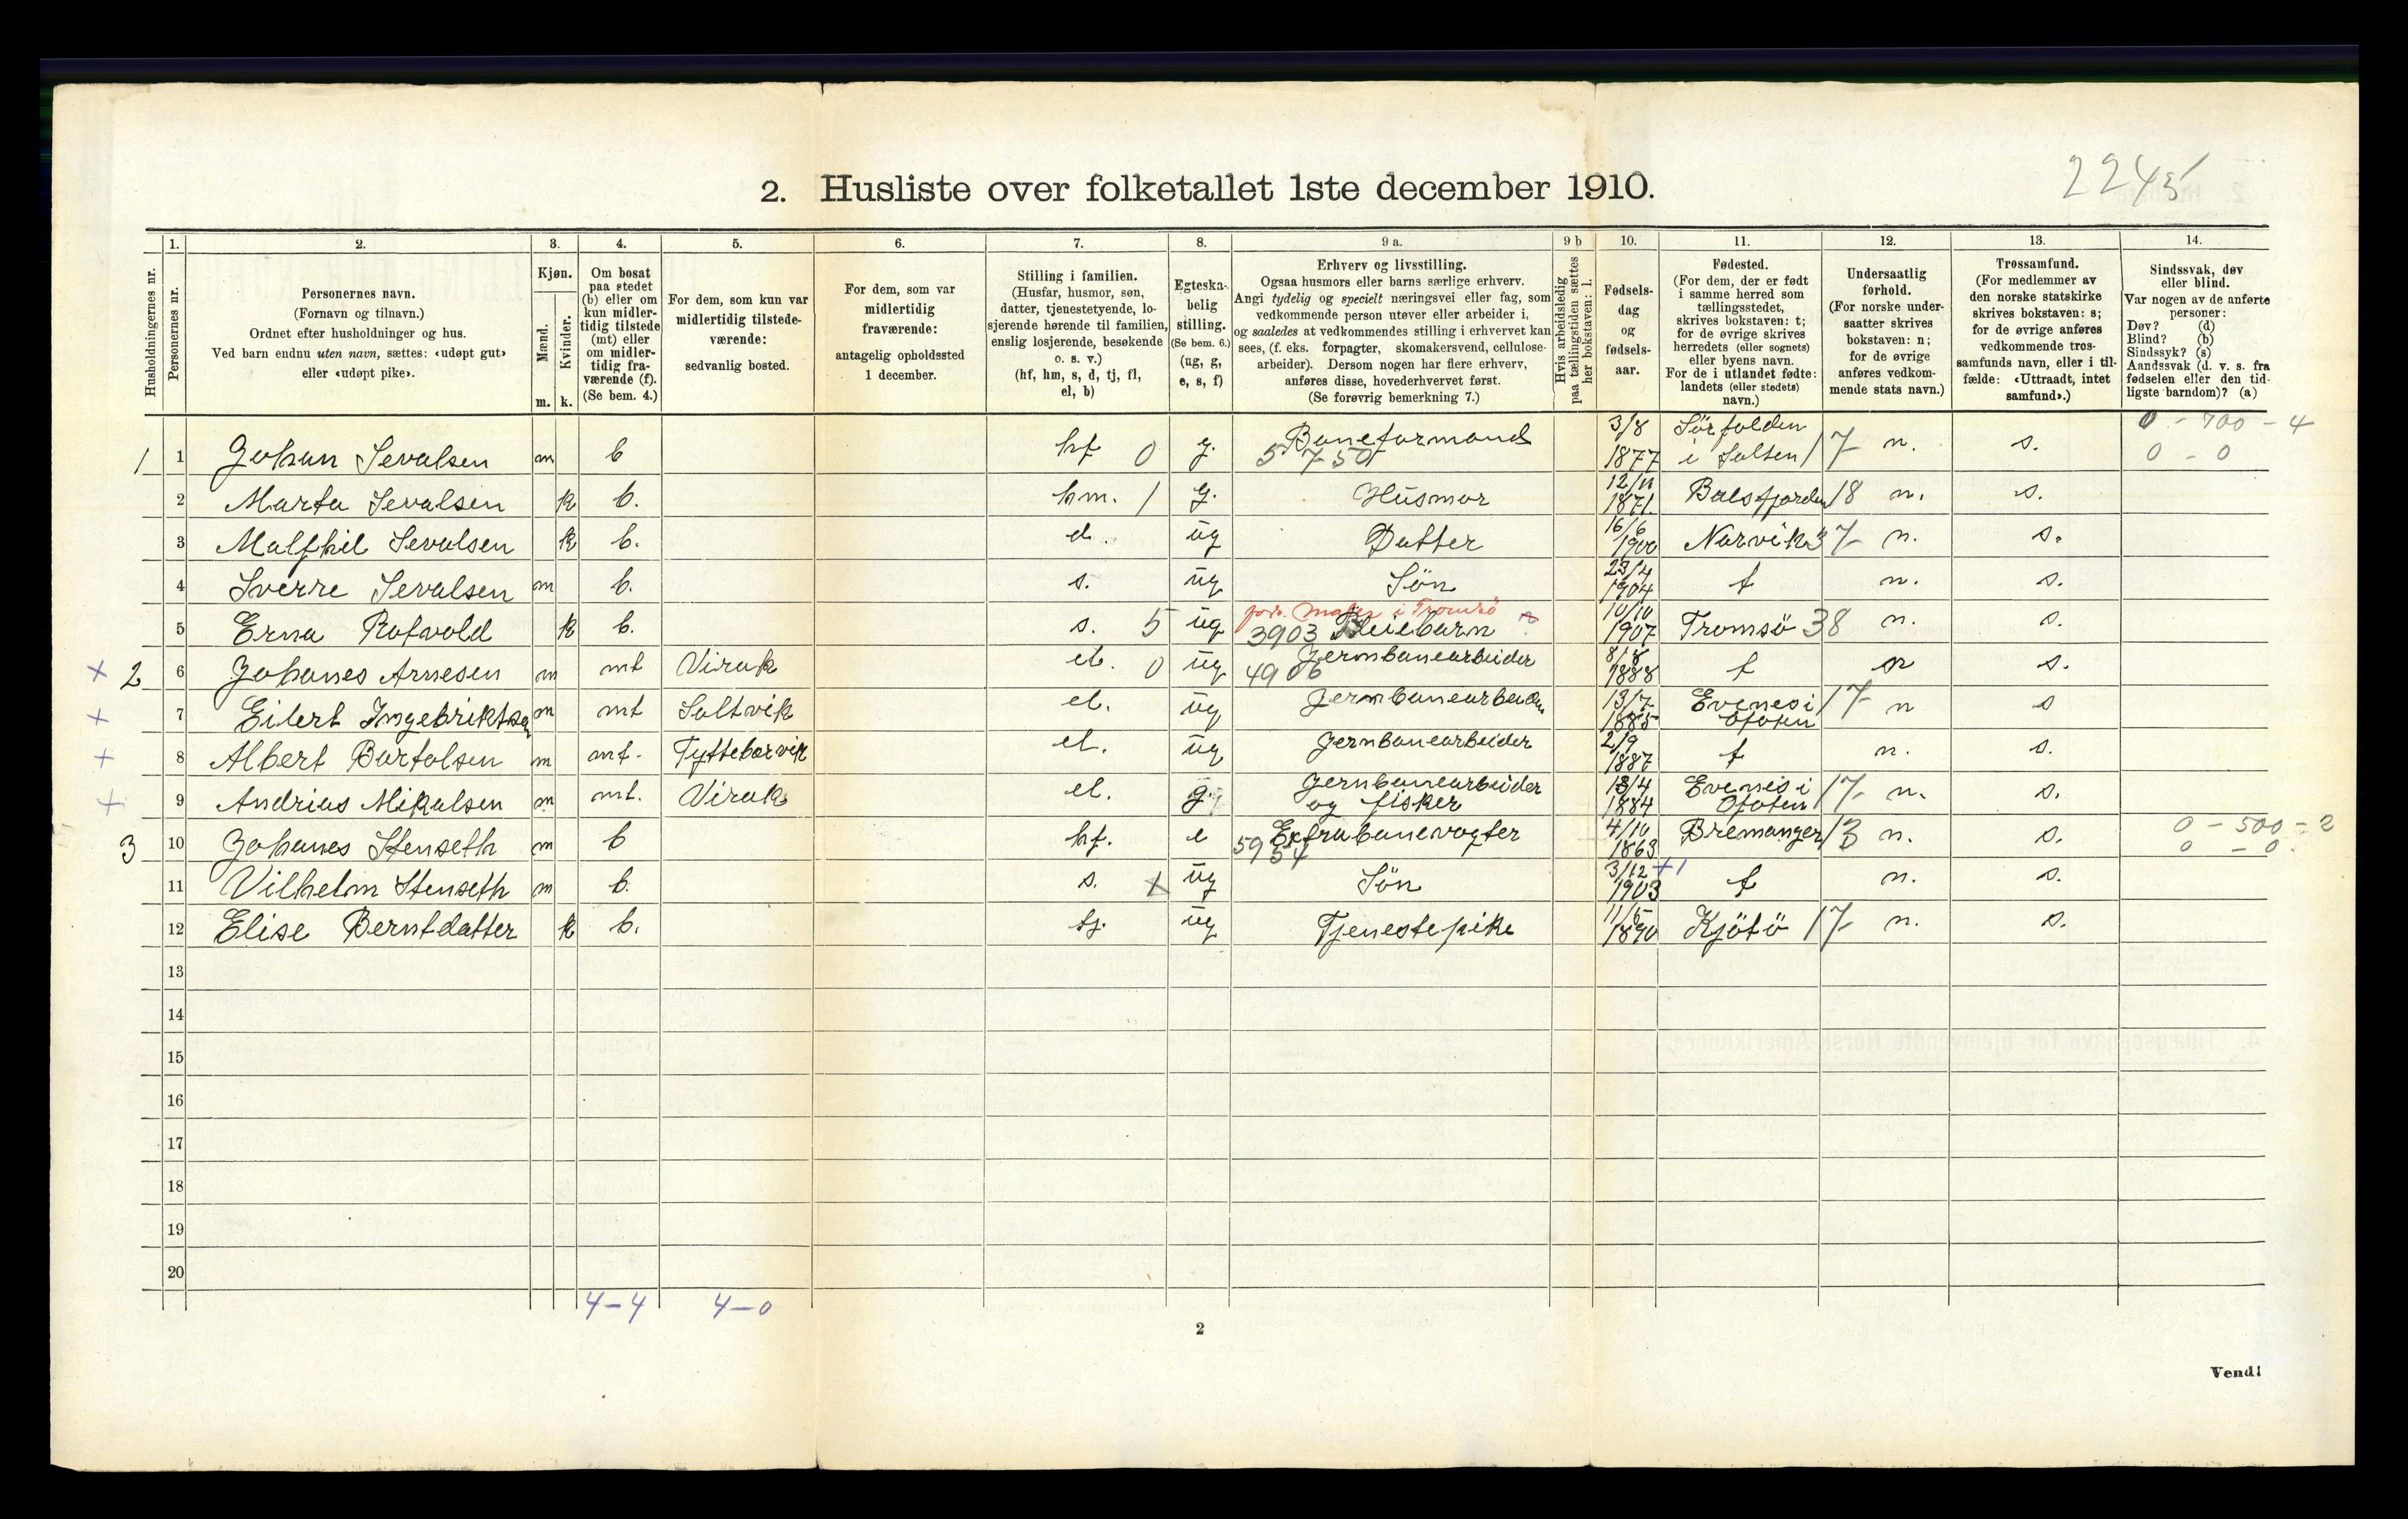 2245
2. Husliste over folketallet 1ste december 1910.
Husholdningernes nr.
1. Personernes nr.
2. Personernes navn.
(Fornavn og tilnavn.)
Ordnet efter husholdninger og hus.
Ved barn endnu uten navn, sættes: «udøpt gut»
eller «udøpt pike».
3. Kjøn.
Mænd. Kvinder.
m. k.
4. Om bosat
paa stedet
(b) eller om
kun midler-
tidig tilstede
(mt) eller
om midler-
tidig fra-
værende (f).
(Se bem. 4.)
5. For dem, som kun var
midlertidig tilstede-
værende:
sedvanlig bosted.
6. For dem, som var
midlertidig
fraværende:
antagelig opholdssted
1 december.
7. Stilling i familien.
(Husfar, husmor, søn,
datter, tjenestetyende, lo-
sjerende hørende til familien,
enslig losjerende, besøkende
o. s. v.)
(hf, hm, s, d, tj, fl,
el, b)
8. Egteska-
belig
stilling.
(Se bem. 6.)
(ug, g,
e, s, f)
9 a. Erhverv og livsstilling.
Ogsaa husmors eller barns særlige erhverv.
Angi tydelig og specielt næringsvei eller fag, som
vedkommende person utøver eller arbeider i,
og saaledes at vedkommendes stilling i erhvervet kan
sees, (f. eks. forpagter, skomakersvend, cellulose-
arbeider). Dersom nogen har flere erhverv,
anføres disse, hovederhvervet først.
(Se forøvrig bemerkning 7.)
9 b Hvis arbeidsledig
paa tællingstiden sættes
her bokstaven: l.
10. Fødsels-
dag
og
fødsels-
aar.
11. Fødested.
(For dem, der er født
i samme herred som
tællingsstedet,
skrives bokstaven: t;
for de øvrige skrives
herredets (eller sognets)
eller byens navn.
For de i utlandet fødte:
landets (eller stedets)
navn.)
12. Undersaatlig
forhold.
(For norske under-
saatter skrives
bokstaven: n;
for de øvrige
anføres vedkom-
mende stats navn.)
13. Trossamfund.
(For medlemmer av
den norske statskirke
skrives bokstaven: s;
for de øvrige anføres
vedkommende tros-
samfunds navn, eller i til-
fælde: «Uttraadt, intet
samfund».)
14. Sindssvak, døv
eller blind.
Var nogen av de anførte
personer:
Døv? (d)
Blind? (b)
Sindssyk? (s)
Aandssvak (d. v. s. fra
fødselen eller den tid-
ligste barndom)? (a)
1 1 Johan Sevalsen m b hf 0 g. Baneformand 5750 3/8 1877 Sörfolden i Salten 17 n. s. 0 - 700 - 4 0 - 0
2 Marta Sevalsen k b. hm. 1 g. Husmor 12/11 1871. Balsfjorden 18 n. s.
3 Malfhil Sevalsen k b. d. ug Datter 16/6 1900 Narvik 37 n. s.
4 Sverre Sevalsen m b. s. ug Sön 23/4 1904 t n. s.
5 Erna Rotvold k b. s. 5 ug 3903 Pleiebarn i Tromsö 10/10 1907 Tromsö 38 n. s.
× 2 6 Johanes Arnesen m mt Virak el. 0 ug Jernbanearbeider 4906 8/8 1888 t n s.
× 7 Eilert Ingebriktsen m mt Saltvik el. ug Jernbanearbeider 13/7 1885 Evenes i Ofoten 17 n s
× 8 Albert Bartolsen m mt. Tyttebærvik el. ug Jernbanearbeider 2/9 1887 t n. s.
× 9 Andrias Mikalsen m mt. Virak el. g. Jernbanearbeider og fisker 13/4 1884 Evenes i Ofoten 17 n. s.
3 10 Johanes Stenseth m b hf. e Extrabanevogter 5954 4/10 1863 Bremanger 13 n. s. 0 - 500 - 2 0 - 0
11 Vilhelm Stenseth m b. s. × ug Sön 3/12 1903 +1 t n. s.
12 Elise Berntdatter k b. tj. ug Tjenestepike 11/5 1890 Kjötö 17 n. s.
13
14
15
16
17
18
19
20
4-4 4-0
2
Vend!